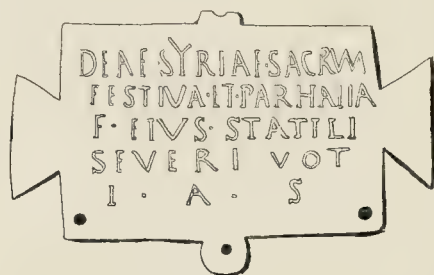 DEAE·SYRIAE·SACRVM
FESTIVA·ET·PARHALIA
F·EIVS·STATILI
SEVERI VOT
I · A · S